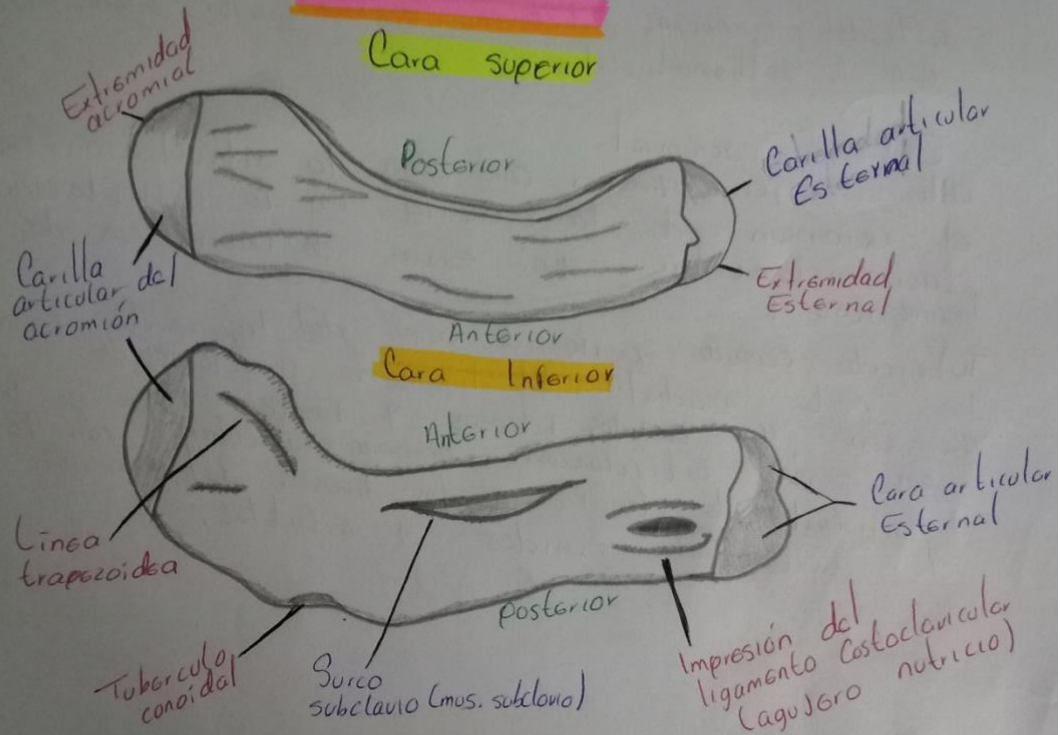 Cara superior
Extremidad
acromial
Posterior
Carilla articular
Esternal
Carilla
articular del
acromión
Extremidad
Esternal
Anterior
Cara Inferior
Anterior
Cara articular
Esternal
Linea
trapezoidea
Posterior
Tuberculo
conoidal
Surco
subclavio (mus. subclavio)
Impresión del
ligamento Costoclavicular
(agujero nutricio)